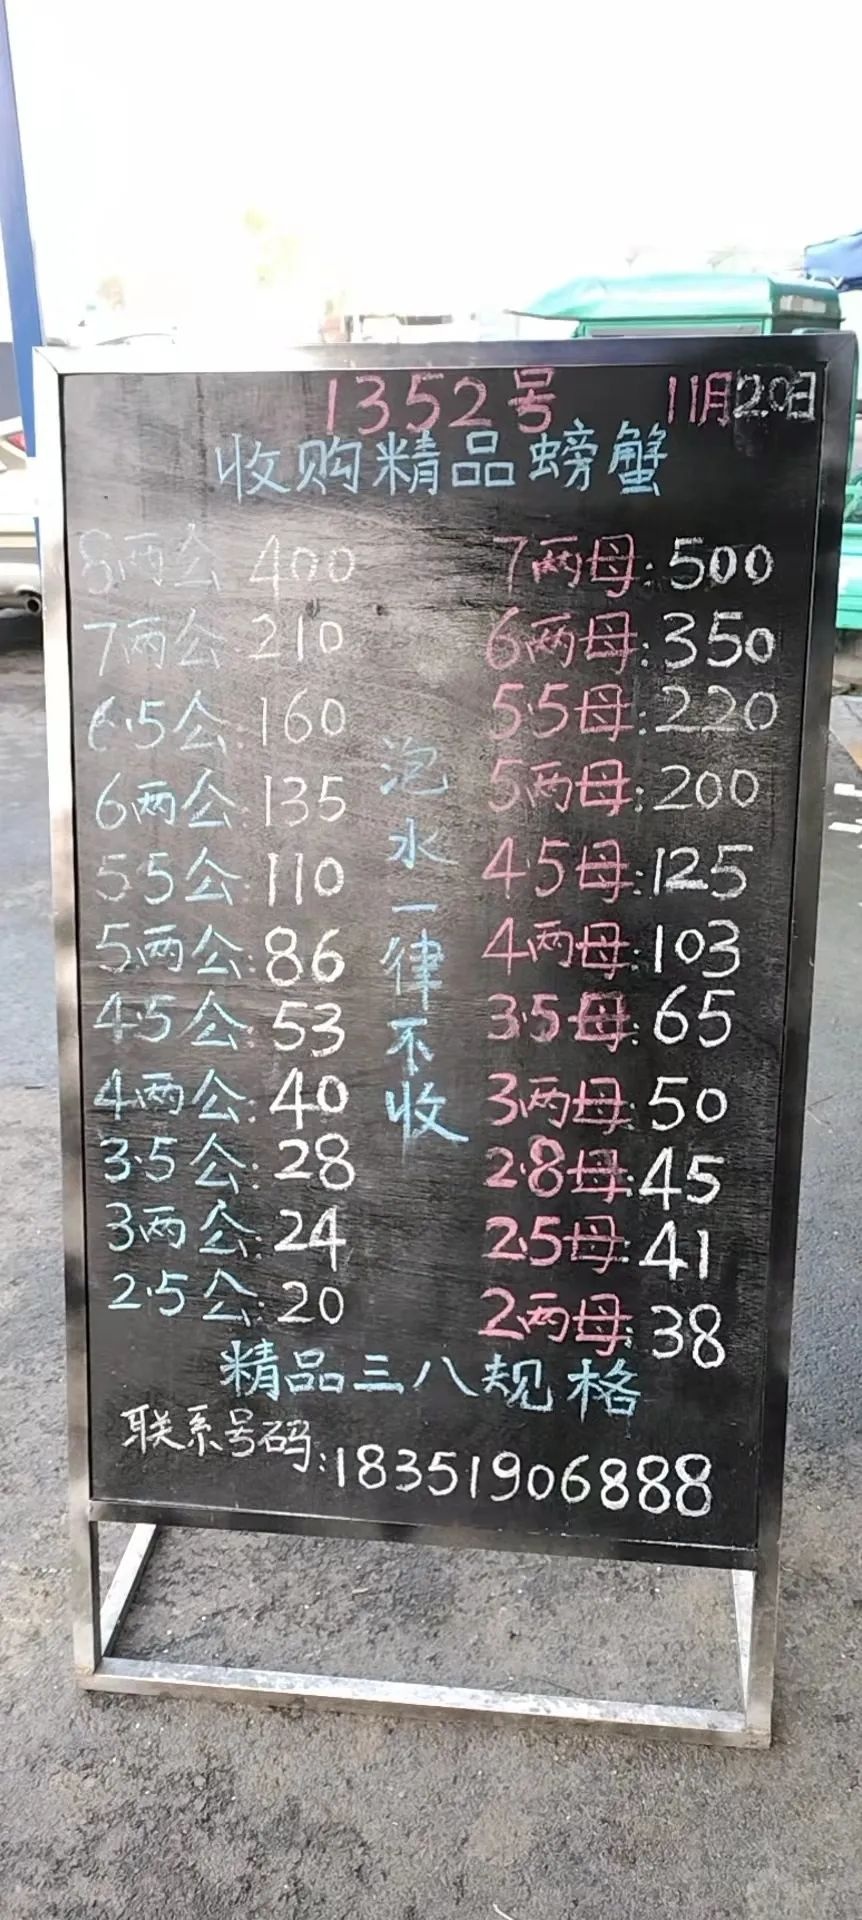 1352号 11月20日
收购精品螃蟹
8两公 400
7两公 210
6.5公:160
6两公:135
5.5公:110
5两公:86
4.5公:53
4两公:40
3.5公:28
3两公:24
2.5公:20
泡水一律不收
7两母:500
6两母:350
5.5母:220
5两母:200
4.5母:125
4两母:103
3.5母:65
3两母:50
2.8母:45
2.5母:41
2两母:38
精品三八规格
联系号码:18351906888